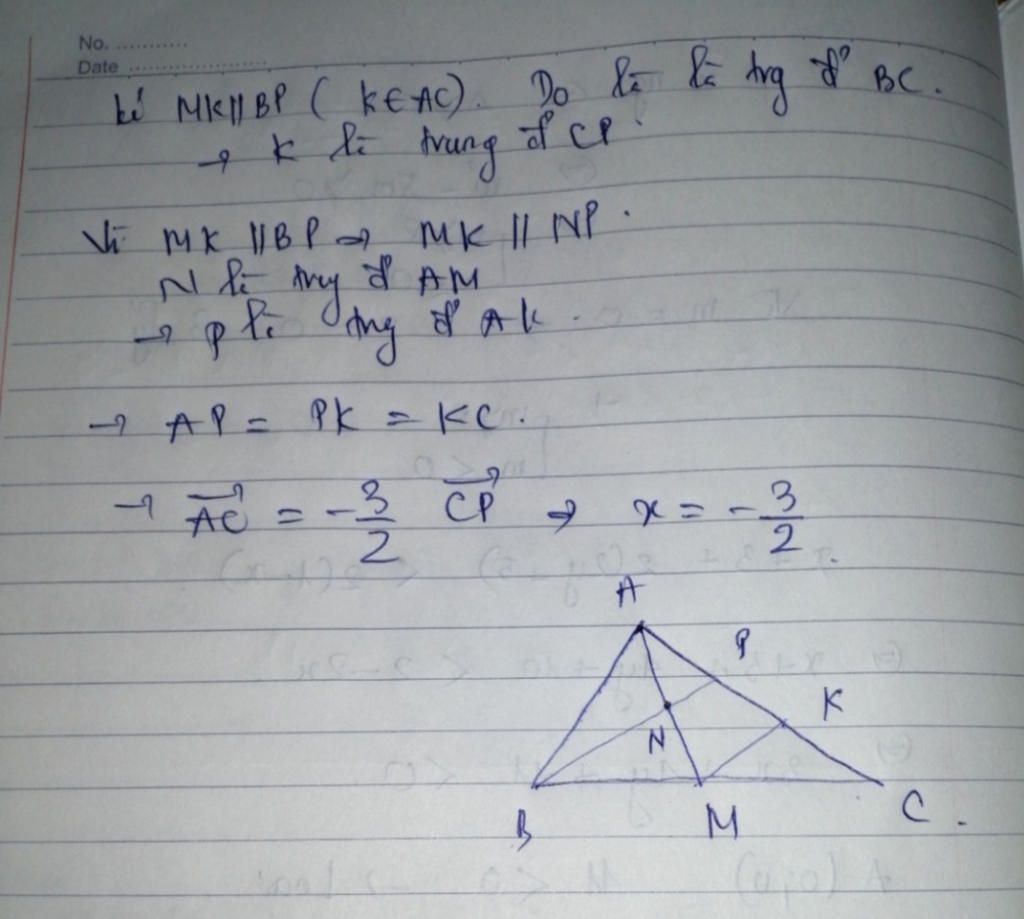 No. ...........
Date ......................
kẻ MK//BP ( K∈AC). Do là là trg đ' BC.
→ K là trung đ' CP.
Vì MK // BP → MK // NP.
N là trg đ' AM
→ P là trg đ' AK.
→ AP = PK = KC.
→ \overrightarrow{AC} = -\frac{3}{2} \overrightarrow{CP} → x = -\frac{3}{2}.
A
P
K
N
B M C.